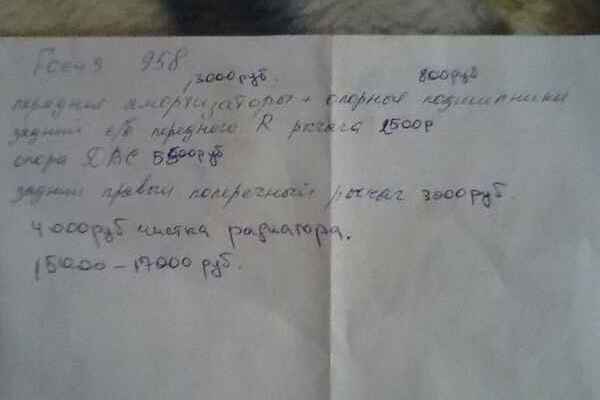 958
3000 руб. 800 руб
передний амортизаторы + опорные подшипники
задний с/б переднего R рычага 2500р
опора ДВС 5500руб
задний правый поперечный рычаг 3000 руб.
4000руб чистка радиатора.
15000 - 17000 руб.